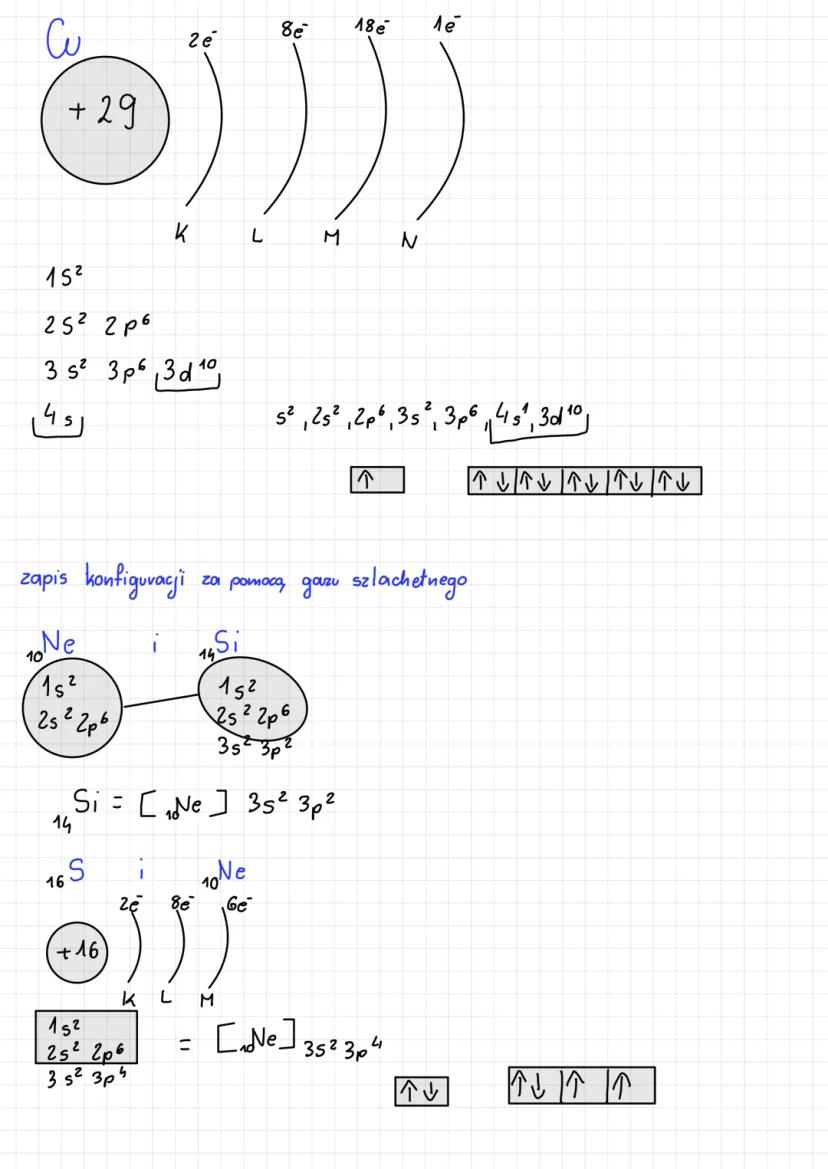 Cu 2e⁻ 8e⁻ 18e⁻ 1e⁻
+29
K L M N
1s²
2s² 2p⁶
3s² 3p⁶ 3d¹⁰
4s s², 2s², 2p⁶, 3s², 3p⁶, 4s¹, 3d¹⁰
↑ ↑↓ ↑↓ ↑↓ ↑↓ ↑↓
zapis konfiguracji za pomocą gazu szlachetnego
₁₀Ne i ₁₄Si
1s² 1s²
2s² 2p⁶ 2s² 2p⁶
3s² 3p²
₁₄Si = [₁₀Ne] 3s² 3p²
₁₆S i ₁₀Ne
2e⁻ 8e⁻ 6e⁻
+16
K L M
1s²
2s² 2p⁶ = [₁₀Ne] 3s² 3p⁴
3s² 3p⁴
↑↓ ↑↓ ↑ ↑